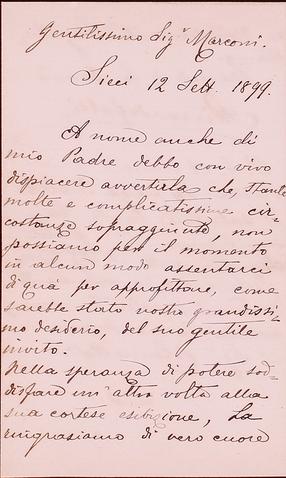 Gentilissimo Sigr Marconi.
Sieci 12 Sett. 1899.
A nome anche di
mio Padre debbo con vivo
dispiacere avvertirla che, stante
molte e complicatissime cir-
costanze sopraggiunte, non
possiamo per il momento
in alcun modo assentarci
di quà per approfittare, come
sarebbe stato nostro grandissi-
mo desiderio, del suo gentile
invito.
Nella speranza di potere sod-
disfare un'altra volta alla
sua cortese esibizione, La
ringraziamo di vero cuore